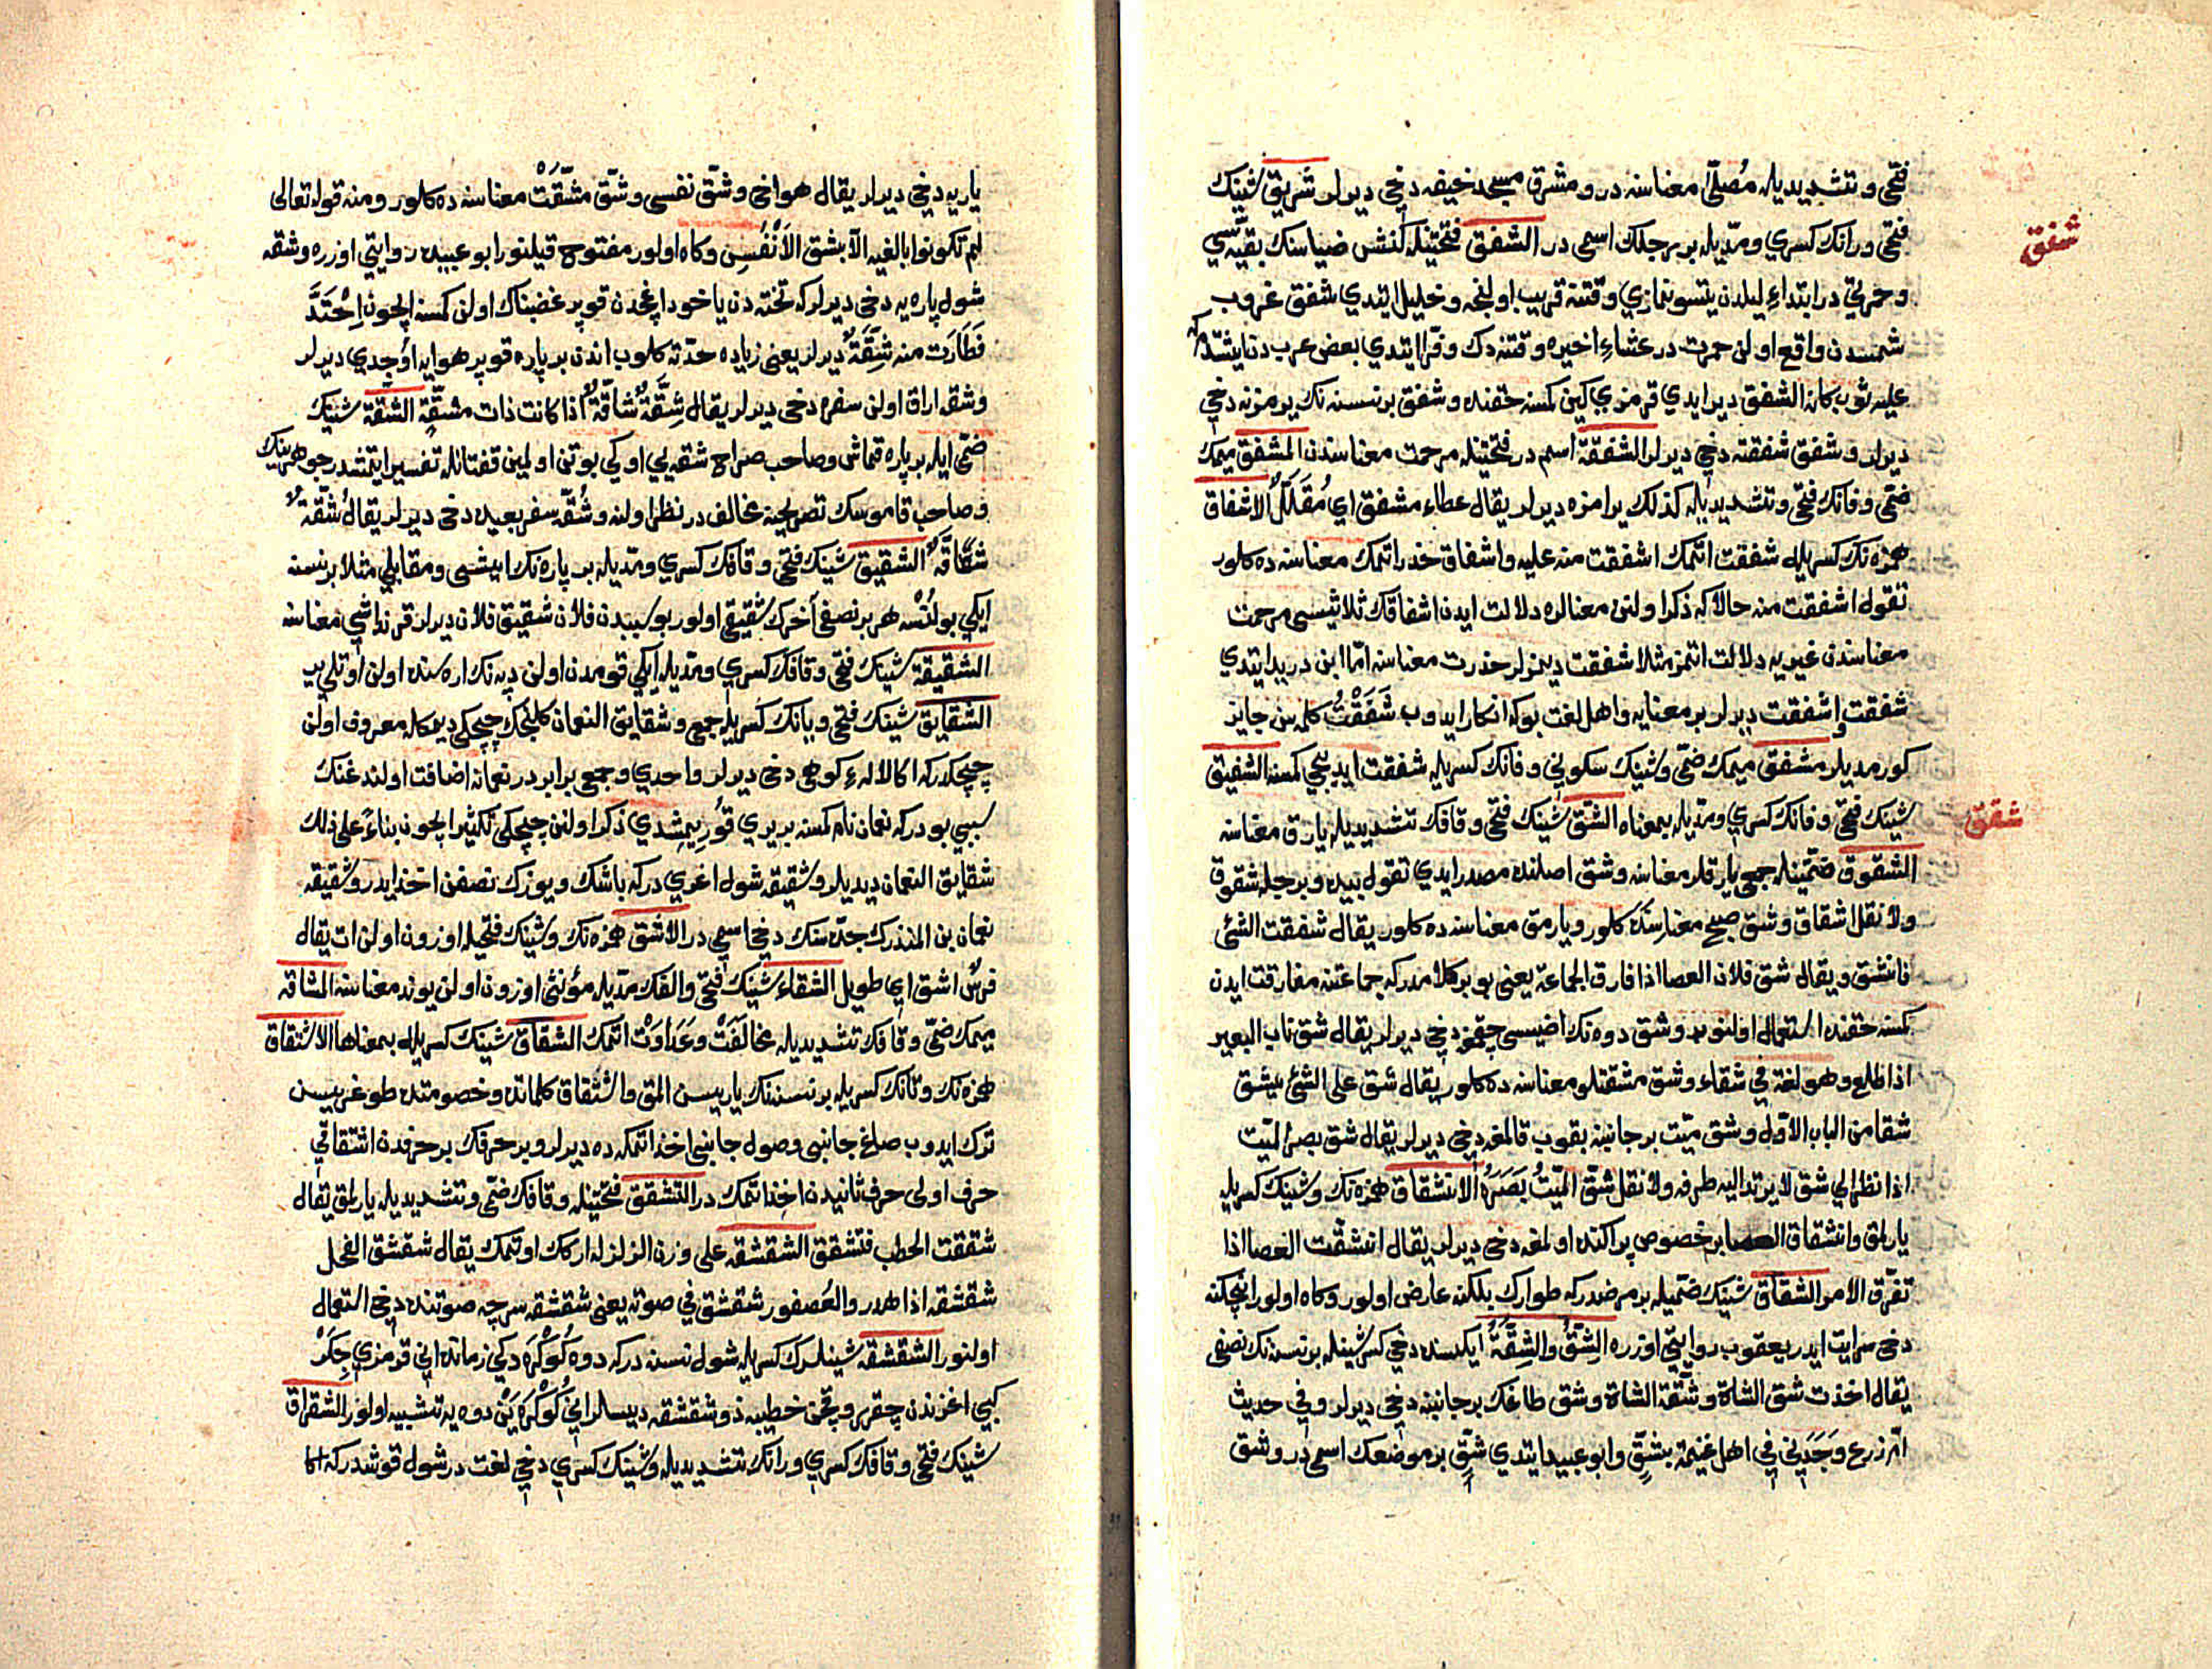 فتحى وتشديديله مُصلّى معناسنه در ومشرق مسجد خيفه دخى ديرلر شريق شينك
شفق
فتحى ورانك كسري ومدّيله بر رجلك اسمى در الشفق فتحتينله كنش ضياسنك بقيّه سي
وحمرتي در ابتداءِ ليلدن يتسو نمازي وقتنه قريب اولنجه وخليل ايتدي شفق غروب
شمسدن واقع اولن حمرت در عشاءِ اخيره وقتنه دك وفرّا ايتدي بعض عرب دن ايشتدم كه
عليه ثوب كانه الشفق دير ايدي قرمزي كين كمسنه حقنده وشفق بر نسنه نك يرمزنه دخي
ديرلر وشفق شفقته دخي ديرلر الشفقة اسم در فتحتينله مرحمت معناسندن المشفق ميمك
ضمّى وفانك فتحى وتشديديله كذلك يرامزه ديرلر يقال عطاء مشفق اي مُقَلَّلٌ الاشفاق
همزه نك كسريله شفقت اتمك اشفقت منه عليه واشفاق حذر اتمك معناسنه ده كلور
تقول اشفقت منه حالا كه ذكر اولنن معنالره دلالت ايدن اشفاقك ثلاثيسى مرحمت
معناسندن غيريه دلالت اتمز مثلا شفقت ديمزلر حذرت معناسنه امّا ابن دريد ايتدي
شفقت واشفقت ديرلر بر معنايه واهل لغت بوكه انكار ايدوب شَفَقْتُ كلمه سن جايز
كورمديلر مشفق ميمك ضمّى وشينك سكوني وفانك كسريله شفقت ايديجي كمسنه الشفيق
شينك فتحى وفانك كسري ومدّيله بمعناه الشق شينك فتحى وقافك تشديديله يارق معناسنه
شقق
الشقوق ضمّتينله جمعى يارقلر معناسنه وشق اصلنده مصدر ايدي تقول بيده وبرجله شقوق
ولا تقل شقاق وشق صبح معناسنه كلور ويارمق معناسنه ده كلور يقال شققت الشئ
فانشق ويقال شق فلان العصا اذا فارق الجماعة يعنى بو بر كلامدر كه جماعتنه مفارقت ايدن
كمسنه حقنده استعمال اولنور وشق دوه نك اضيسى چقمه دخي ديرلر يقال شق ناب البعير
اذا طلع وهو لغة في شقاء وشق مشقتلو معناسنه ده كلور يقال شق على الشئ يشق
شقا من الباب الاوّل وشق ميّت بر جانبنه بقوب قالمغه دخي ديرلر يقال شق بصر الميّت
اذا نظر الي شق لا يرتد اليه طرفه ولا تقل شقّ الميّتُ بَصَرَهُ الانشقاق همزه نك وشينك كسريله
يارلمق وانشقاق العصا بر خصوص پراكنده اولمغه دخي ديرلر يقال انشقت العصا اذا
تفرّق الامر الشقاق شينك ضمّيله بر مرضدر كه طوارك بلكنه عارض اولور وكاه اولور انچكنه
دخى سرايت ايدر يعقوب روايتي اوزره الشِقُّ والشِقَّةُ ايكسنده دخي كسر شينله بر نسنه نك نصفى
يقال اخذت شق الشاة وشقّة الشاة وشق طاغك بر جانبنه دخي ديرلر وفي حديث
امّ زرع وَجَدَني في اهل غنيمة بشقٍّ وابو عبيد ايتدي شقّ بر موضعك اسمى در وشق
ياريه دخي ديرلر يقال هو اخى وشقّ نفسى وشقّ مشقّت معناسنه ده كلور ومنه قوله تعالى
لم تكونوا بالغيه الّا بشق الاَنْفُسِ وكاه اولور مفتوح قيلنور ابو عبيده روايتي اوزره وشقه
شول پاره يه دخى ديرلر كه تخته دن ياخود اغجدن قوپر غضبناك اولن كمسنه ايچون اِحْتَدَّ
فَطَارَت منه شِقَّةٌ ديرلر يعنى زياده حدّته كلوب اندن بر پاره قوپر هوايه اوچدي ديرلر
وشقه اراق اولن سفره دخى ديرلر يقال شِقَّةٌ شاقّةٌ اذا كانت ذات مشقّةٍ الشقّة شينك
ضمّى ايله بر پاره قماش وصاحب صراح شقه يي اوكي بوتن اولمين قفتانله تفسير ايتمشدر جوهرينك
وصاحب قاموسك تصريحنه مخالف در نظر اولنه وشُقّه سفر بعيده دخى ديرلر يقال شقّة
شاقّة الشقيق شينك فتحى وقافك كسري ومدّيله بر پاره نك ايشى ومقابلي مثلا بر نسنه
ايكي بولنسه هر بر نصفى آخرك شقيقى اولور بو سببدن فلان شقيق فلان ديرلر قرنداشي معناسنه
الشقيقة شينك فتحى وقافك كسري ومدّيله ايكي قومدن اولن ديه نك اره سنده اولن اوتلي ير
الشقايق شينك فتحى ويانك كسريله جمعى وشقايق النعمان كلنجك چيچكي ديمكله معروف اولن
چيچكدر كه اكا لاله ءِ كوهى دخى ديرلر واحدي وجمعى برابر در نعمانه اضافت اولندغنك
سببي بودر كه نعمان نام كمسنه بر يري قوريمشدي ذكر اولنن چيچكى تكثير ايچون بناءً على ذلك
شقايق النعمان ديديلر وشقيقه شول اغري در كه باشك ويوزك نصفن اخذ ايدر وشقيقه
نعمان بن المنذرك جدّه سنك دخي اسمي در الاشق همزه نك وشينك فتحيله اوزون اولن ات يقال
فرسٌ اشق اي طويل الشقاء شينك فتحى والفك مدّيله مؤنثى اوزون اولن يوند معناسنه المشاقه
ميمك ضمّى وقافك تشديديله مخالَفَتْ وعَدَاوَتْ اتمك الشقاق شينك كسريله بمعناها الاشتقاق
همزه نك وتانك كسريله بر نسنه نك ياريسن المق واشتقاق كلماتده وخصومتده طوغريسن
ترك ايدوب صاغ جانبى وصول جانبنى اخذ اتمكه ده ديرلر وبر حرفك بر حرفدن اشتقاقي
حرف اولى حرف ثانيدن اخذ اتمك در التشقق فتحتينله وقافك ضمّى وتشديديله يارلمق يقال
شققت الحطب فتشقق الشقشقه على وزن الزلزله اركك اوتمك يقال شقشق الفحل
شقشقه اذا هدر والعُصفور شقشق في صوته يعنى شقشقه سرچه صوتنده دخي استعمال
اولنور الشقشقه شينلرك كسريله شول نسنه در كه دوه كوكره دكي زمانده اني قرمزي جِكَرْ
كبي اغزندن چقرر وقچن خطيبه ذو شقشقه ديسه لر اني كُوكْرَه يَنْ دوه يه تشبيه اولنور الشقراق
شينك فتحى وقافك كسري ورانك تشديديله وشينك كسري دخي لغت در شول قوشدر كه اكا